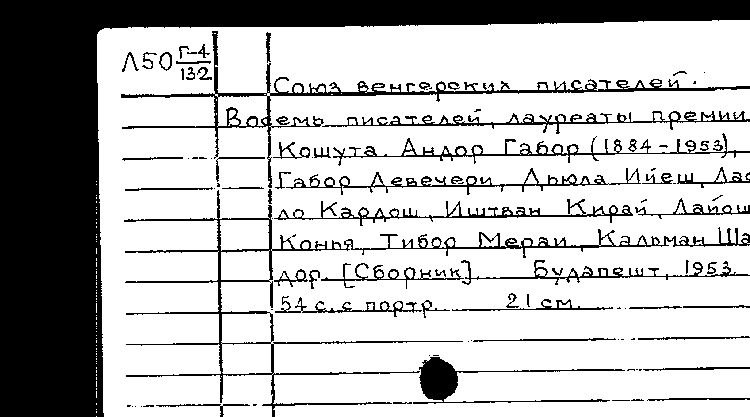 Л50 Г-4/132
Союз венгерских писателей.
Восемь писателей, лауреаты премии
Кошута. Андор Габор (1884-1953),
Габор Девечери, Дьюла Ийеш, Лас
ло Кардош, Иштван Кирай, Лайош
Конья, Тибор Мераи, Кальман Ша
дор. [Сборник]. Будапешт, 1953.
54 с. с портр. 21 см.